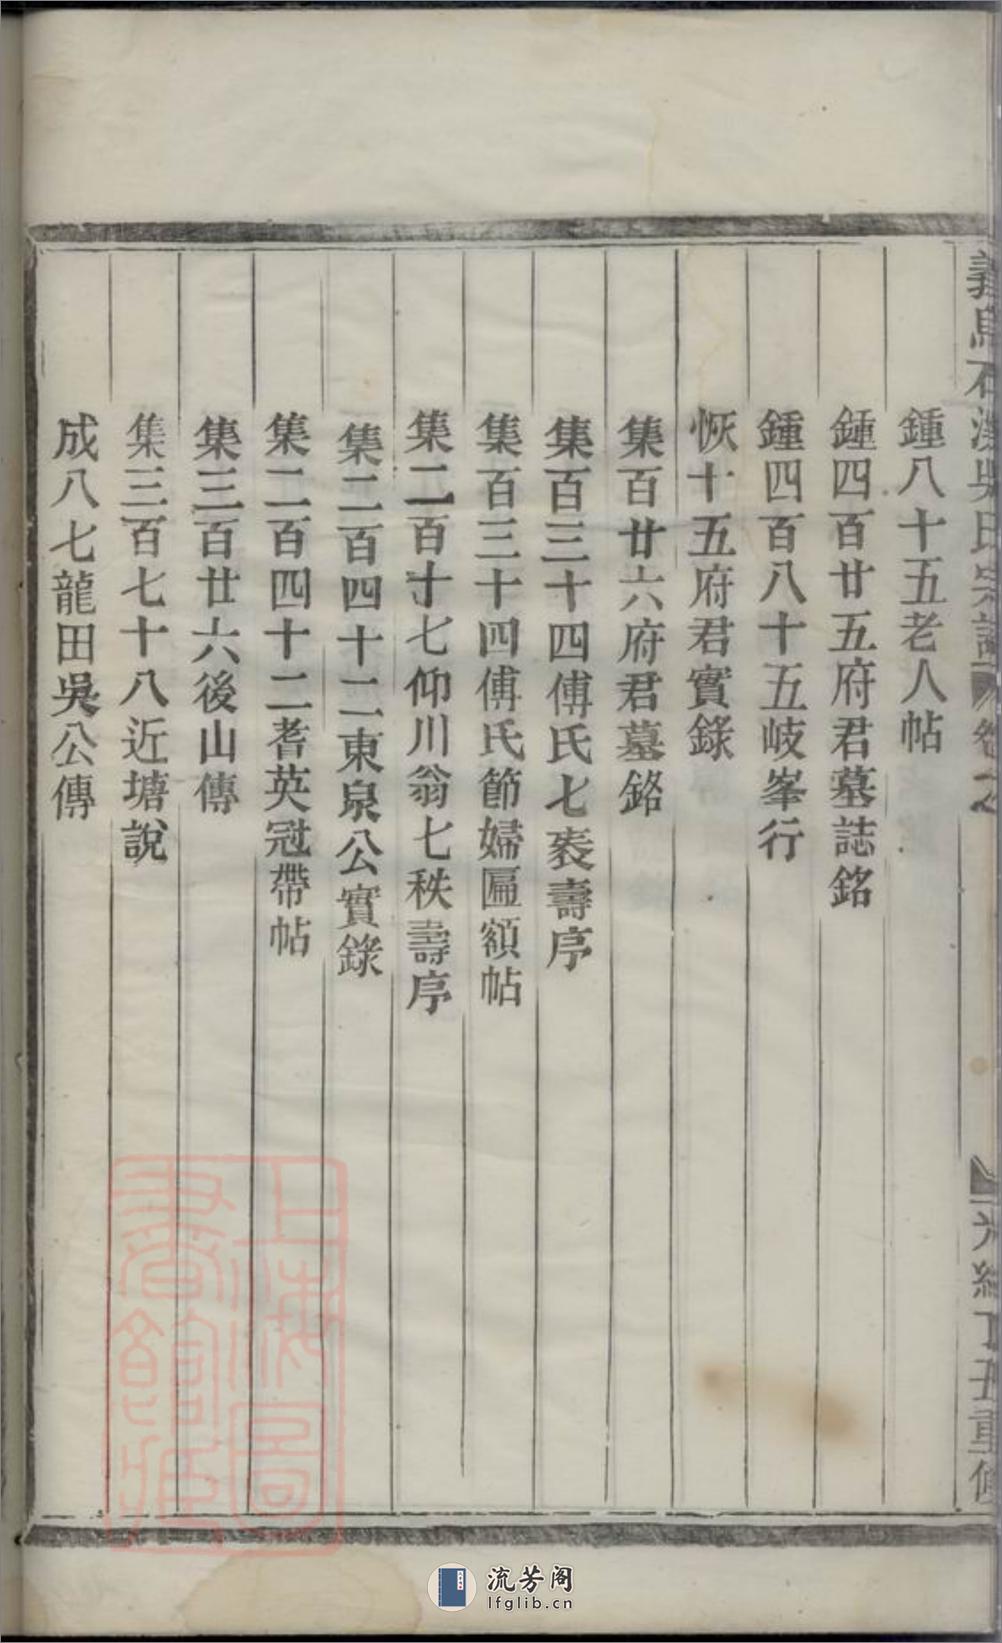 義烏石溪吳氏宗譜 卷之
光緒丁丑重修
鍾八十五老人帖
鍾四百廿五府君墓誌銘
鍾四百八十五岐峯行
恢十五府君實錄
集百廿六府君墓銘
集百三十四傅氏七袠壽序
集百三十四傅氏節婦匾額帖
集二百十七仰川翁七秩壽序
集二百四十二東泉公實錄
集二百四十二耆英冠帶帖
集三百廿六後山傳
集三百七十八近塘說
成八七龍田吳公傳
上海圖書館藏
流芳阁
lfglib.cn